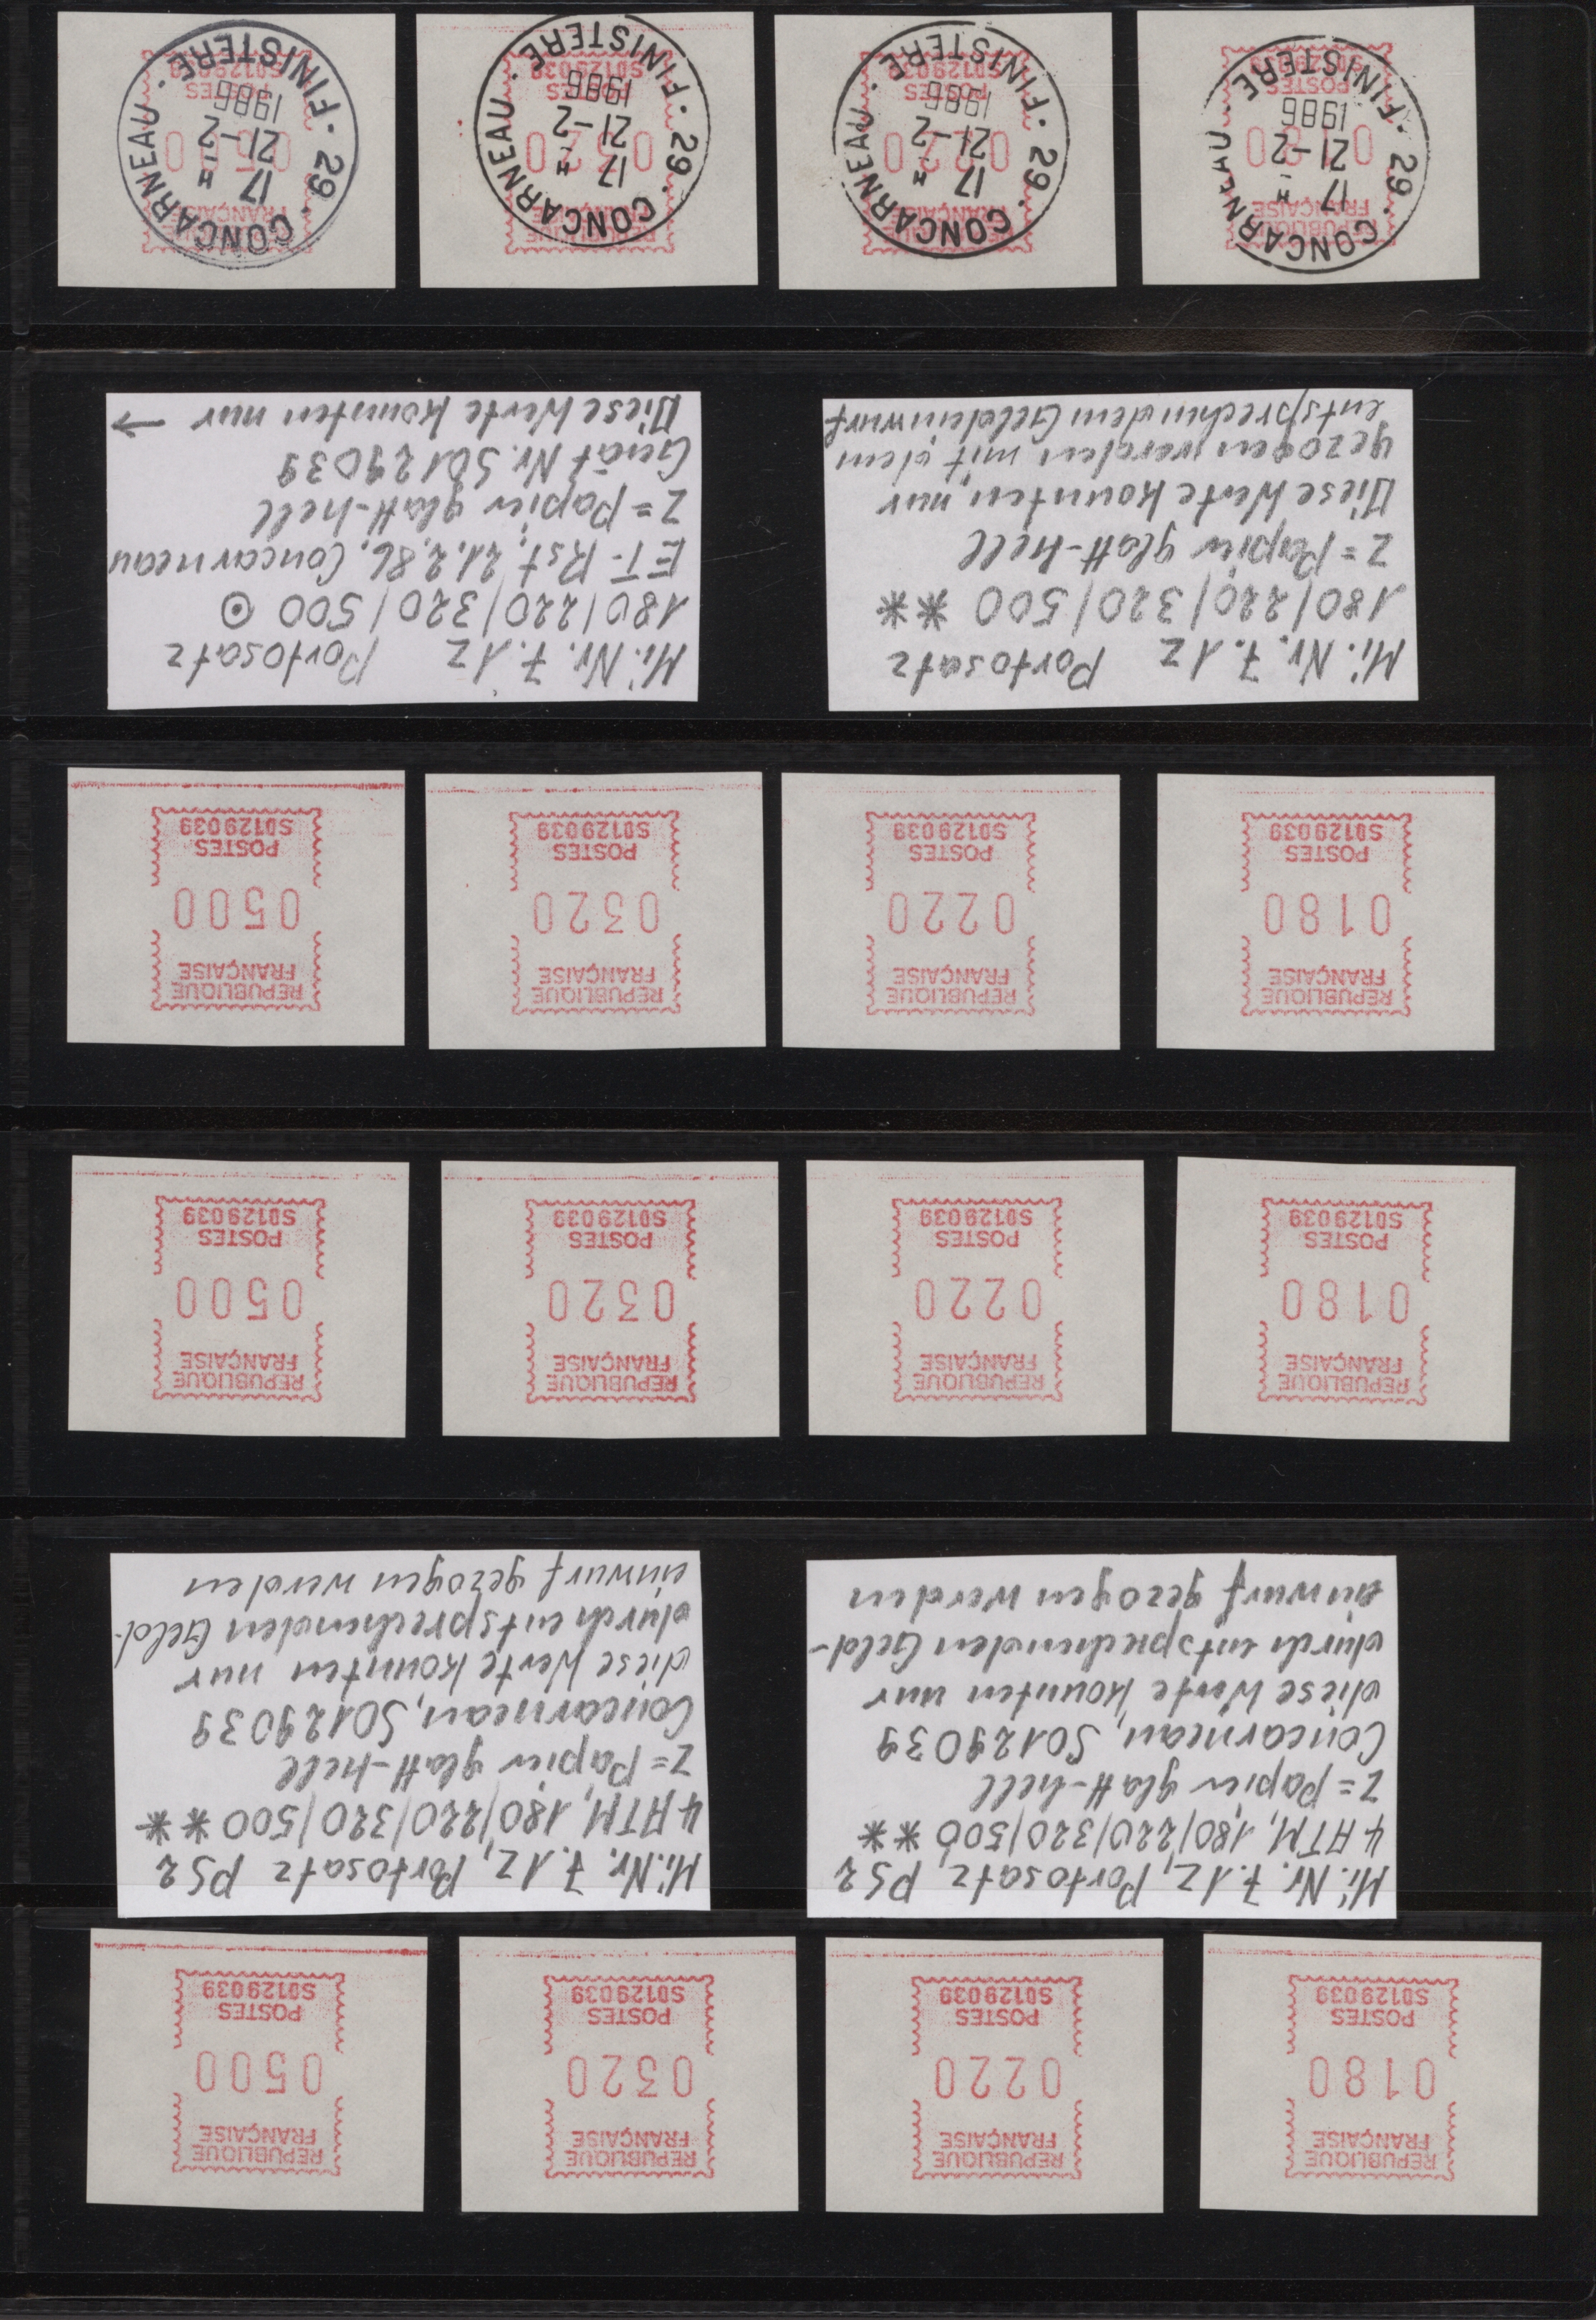 REPUBLIQUE
FRANÇAISE
0180
POSTES
S0129039
REPUBLIQUE
FRANÇAISE
0220
POSTES
S0129039
REPUBLIQUE
FRANÇAISE
0320
POSTES
S0129039
REPUBLIQUE
FRANÇAISE
0500
POSTES
S0129039
Mi. Nr. 7.1Z, Portosatz, PS2
4 ATM, 180/220/320/500 **
Z = Papier glatt-hell
Concarneau, S0129039
diese Werte konnten nur
durch entsprechenden Geld-
einwurf gezogen werden
Mi. Nr. 7.1Z, Portosatz PS2
4 ATM, 180/220/320/500 **
Z = Papier glatt-hell
Concarneau, S0129039
diese Werte konnten nur
durch entsprechenden Geld-
einwurf gezogen werden
REPUBLIQUE
FRANÇAISE
0180
POSTES
S0129039
REPUBLIQUE
FRANÇAISE
0220
POSTES
S0129039
REPUBLIQUE
FRANÇAISE
0320
POSTES
S0129039
REPUBLIQUE
FRANÇAISE
0500
POSTES
S0129039
REPUBLIQUE
FRANÇAISE
0180
POSTES
S0129039
REPUBLIQUE
FRANÇAISE
0220
POSTES
S0129039
REPUBLIQUE
FRANÇAISE
0320
POSTES
S0129039
REPUBLIQUE
FRANÇAISE
0500
POSTES
S0129039
Mi. Nr. 7.1Z Portosatz
180/220/320/500 **
Z = Papier glatt-hell
Diese Werte konnten nur
gezogen werden mit dem
entsprechendem Geldeinwurf
Mi. Nr. 7.1Z Portosatz
180/220/320/500 ⊙
ET-Rst. 21.2.86, Concarneau
Z = Papier glatt-hell
Gerät Nr. S0129039
Diese Werte konnten nur →
29 · CONCARNEAU · FINISTERE ·
17 H
21-2
1986
REPUBLIQUE
FRANÇAISE
0180
POSTES
S0129039
29 · CONCARNEAU · FINISTERE ·
17 H
21-2
1986
REPUBLIQUE
FRANÇAISE
0220
POSTES
S0129039
29 · CONCARNEAU · FINISTERE ·
17 H
21-2
1986
REPUBLIQUE
FRANÇAISE
0320
POSTES
S0129039
29 · CONCARNEAU · FINISTERE ·
17 H
21-2
1986
FRANÇAISE
0500
POSTES
S0129039